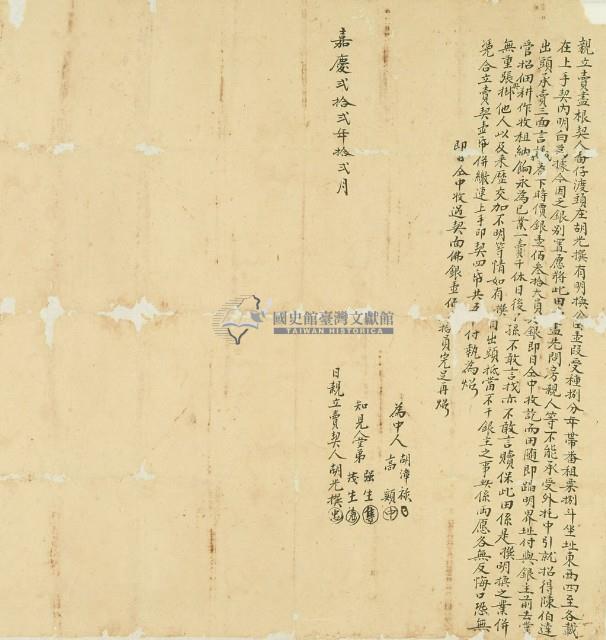 親立賣盡根契人番仔渡頭庄胡光撰有明換公田壹段受種捌分年帶番租粟捌斗坐址東西四至各載
在上手契內明白為據今因乏銀別置愿將此田出盡先問房親人等不能承受外托中引就招得陳伯達
出頭承賣三面言議着下時價銀壹佰叁拾大員銀即日仝中收訖而田隨即踏明界址付與銀主前去掌
管招佃耕作收租納餉永為己業一賣千休日後子孫不敢言找亦不敢言贖保此田係是撰明換之業併
無重張掛他人以及來歷交加不明等情如有撰自出頭抵當不干銀主之事此係兩愿各無反悔口恐無
凭合立賣契壹帋併繳連上手印契四帋共五帋付執為炤
即日仝中收過契面佛銀壹佰拾員完足再炤
為中人 胡漳祿
高顯
知見人堂弟 強生
茂生
嘉慶貳拾貳年拾貳月 日親立賣契人胡光撰
國史館臺灣文獻館
TAIWAN HISTORICA